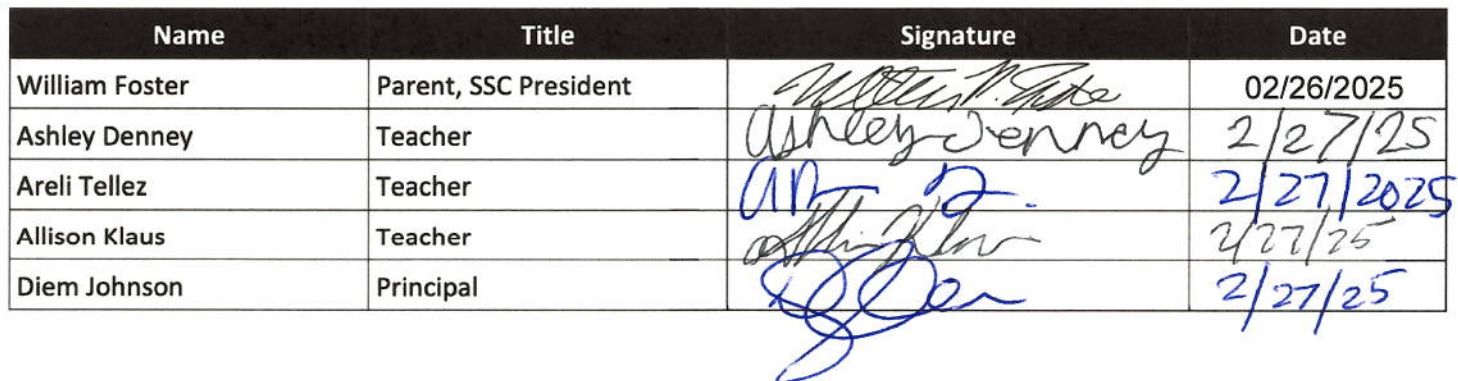 Name Title Signature Date
William Foster Parent, SSC President 02/26/2025
Ashley Denney Teacher Ashley Denney 2/27/25
Areli Tellez Teacher 2/27/2025
Allison Klaus Teacher 2/27/25
Diem Johnson Principal 2/27/25